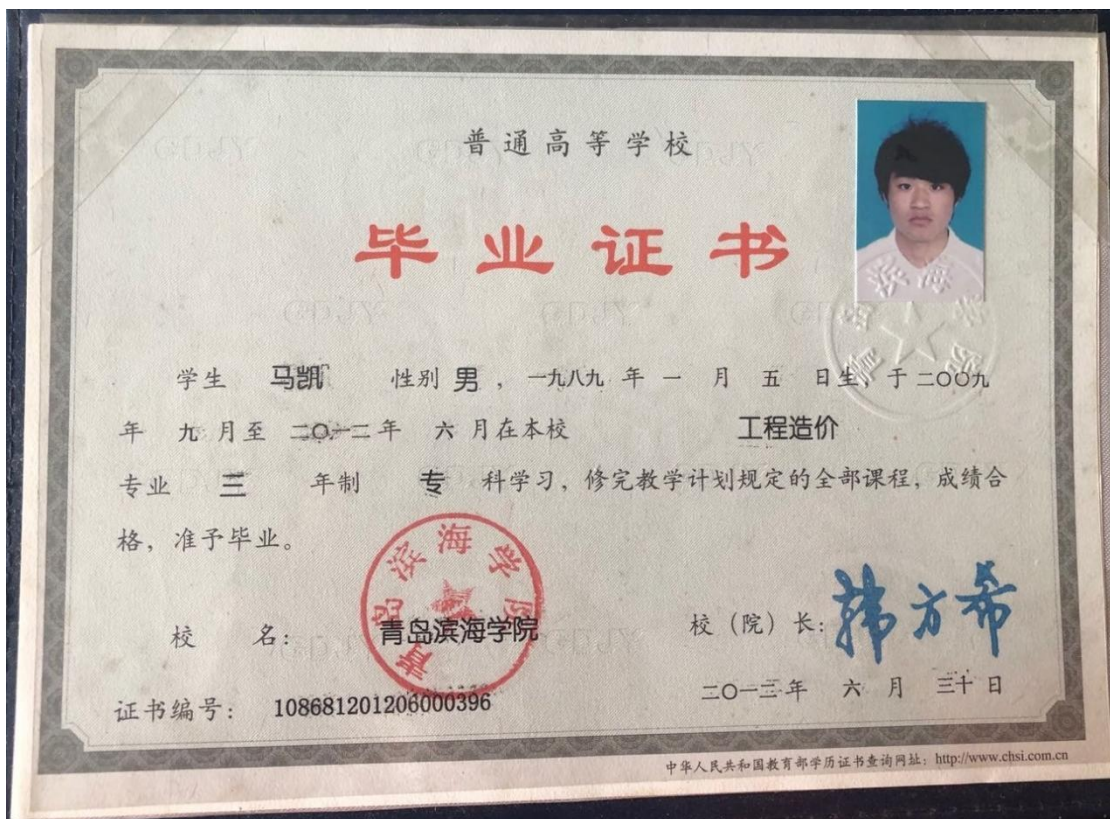 普通高等学校
毕业证书
学生 马凯 性别 男 ，一九八九 年 一 月 五 日生，于 二〇〇九
年 九 月至 二〇一二年 六 月在本校 工程造价
专业 三 年制 专 科学习，修完教学计划规定的全部课程，成绩合
格，准予毕业。
青岛滨海学院
校 名： 青岛滨海学院
校（院）长：韩方希
证书编号： 108681201206000396
二〇一二年 六 月 三十 日
中华人民共和国教育部学历证书查询网址：http://www.chsi.com.cn